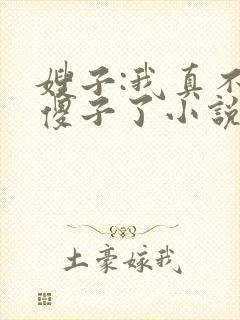 嫂子:我真不
傻子了小說
土豪嫁我